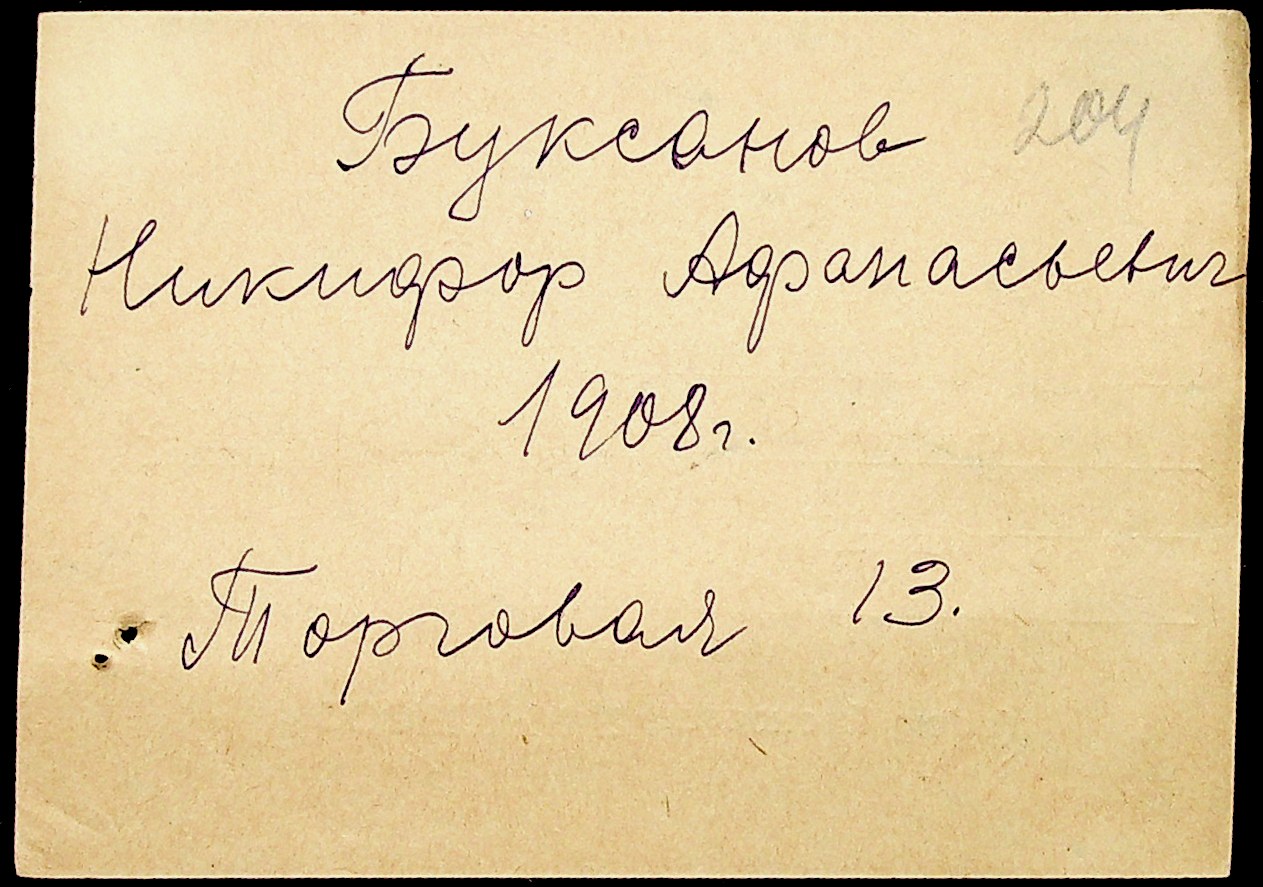 Буксанов 204
Никифор Афанасьевич
1908г.
Торговая 13.